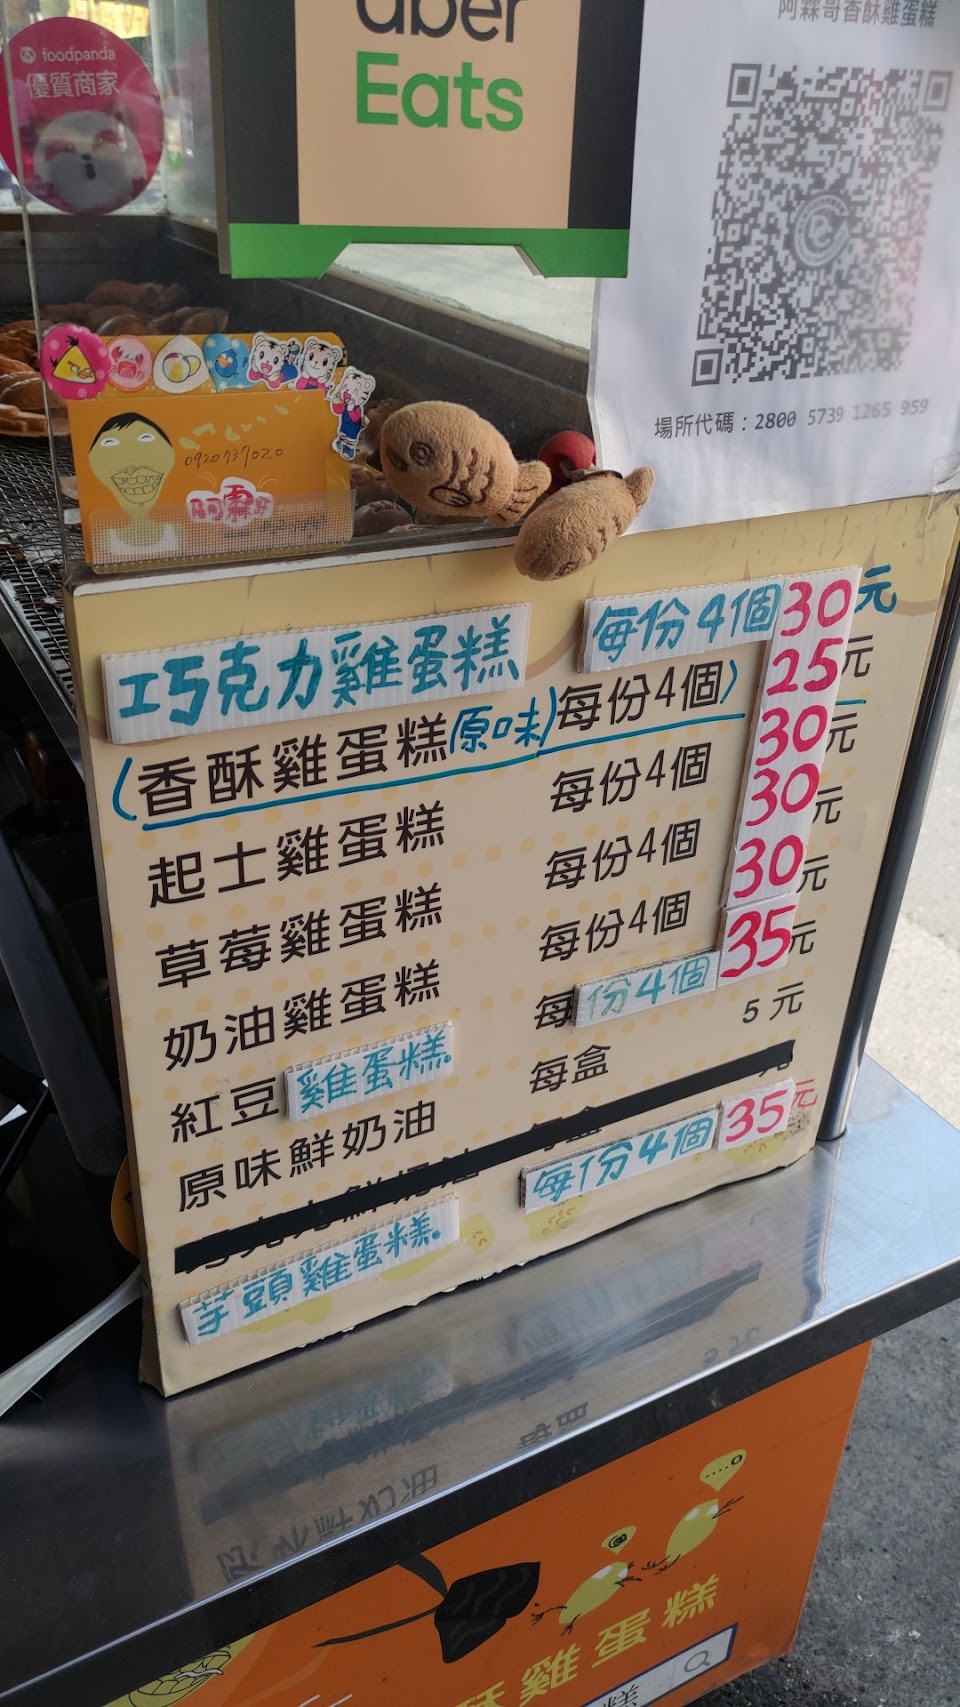 foodpanda
優質商家
uber
Eats
阿霖哥香酥雞蛋糕
場所代碼：2800 5739 1265 959
0920737020
阿霖哥
巧克力雞蛋糕 每份4個 30元
(香酥雞蛋糕原味)每份4個) 25元
起士雞蛋糕 每份4個 30元
草莓雞蛋糕 每份4個 30元
奶油雞蛋糕 每份4個 30元
紅豆雞蛋糕. 每份4個 35元
原味鮮奶油 每盒 5元
芋頭雞蛋糕. 每份4個 35元
酥雞蛋糕
糕